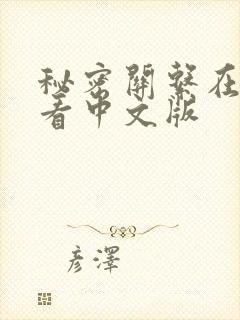 秘密關繫在
看中文版
彦澤